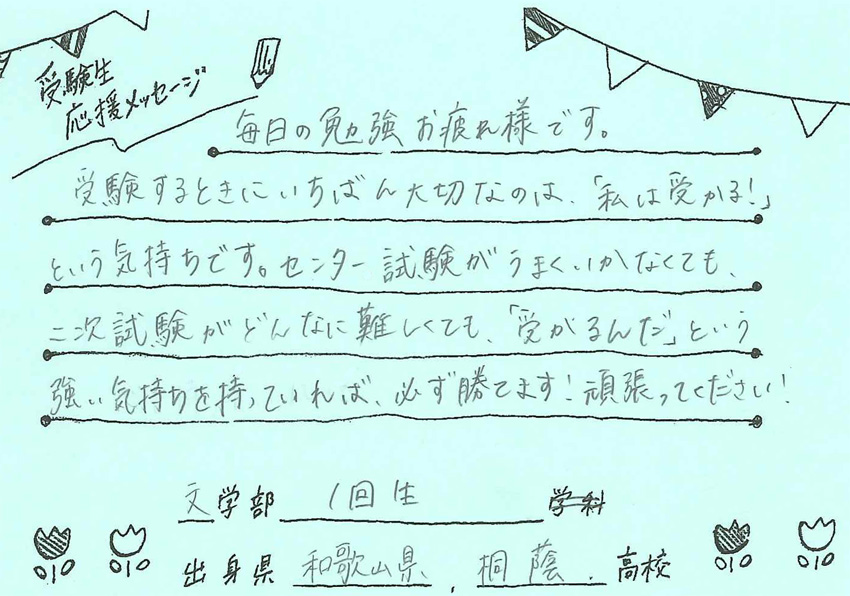 受験生
応援メッセージ
毎日の勉強お疲れ様です。
受験するときにいちばん大切なのは、「私は受かる!」
という気持ちです。センター試験がうまくいかなくても、
二次試験がどんなに難しくても、「受かるんだ」という
強い気持ちを持っていれば、必ず勝てます!頑張ってください!
文学部 1回生 学科
出身県 和歌山県 , 桐蔭 . 高校